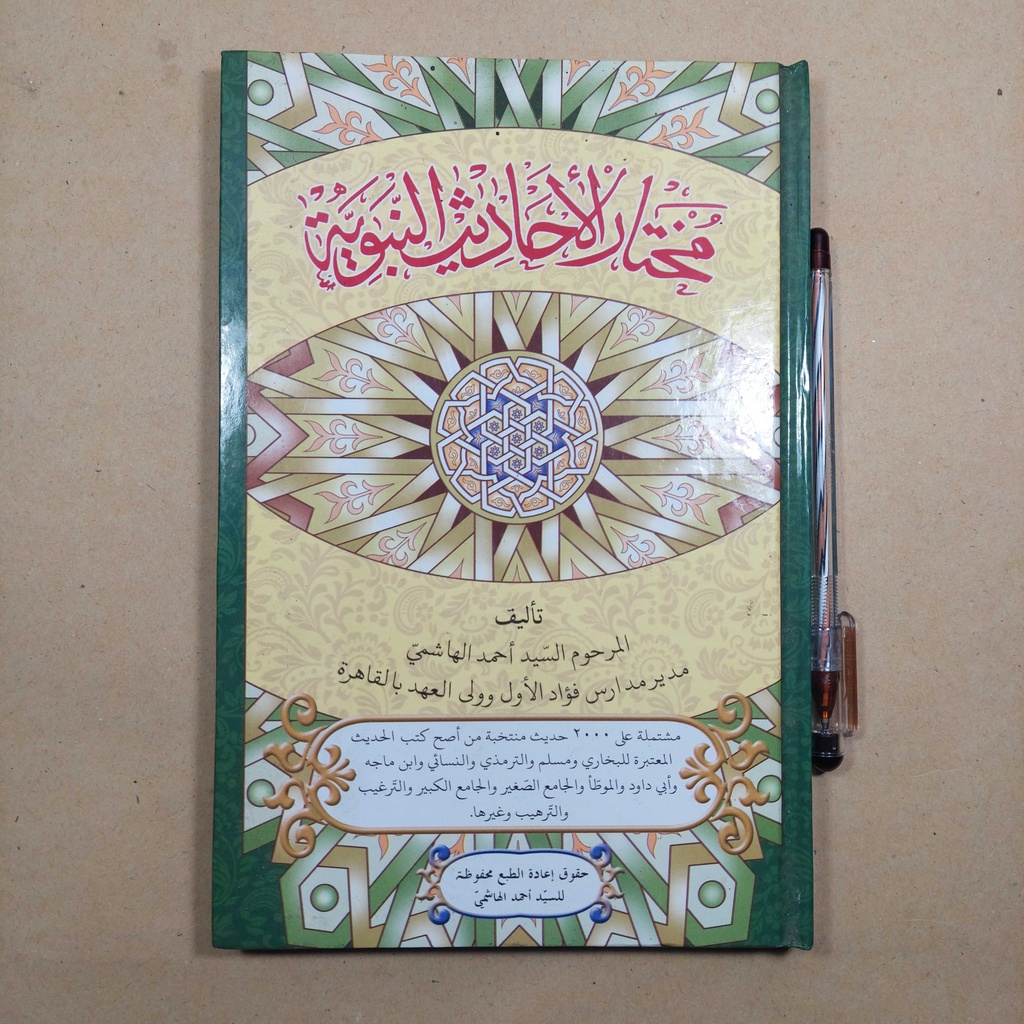 مُختار الأحاديث النّبويّة
تأليف
المرحوم السّيد أحمد الهاشميّ
مدير مدارس فؤاد الأول وولى العهد بالقاهرة
مشتملة على ٢٠٠٠ حديث منتخبة من أصح كتب الحديث
المعتبرة للبخاري ومسلم والترمذي والنسائي وابن ماجه
وأبي داود والموطّأ والجامع الصّغير والجامع الكبير والتّرغيب
والتّرهيب وغيرها.
حقوق إعادة الطبع محفوظة
للسيّد أحمد الهاشميّ